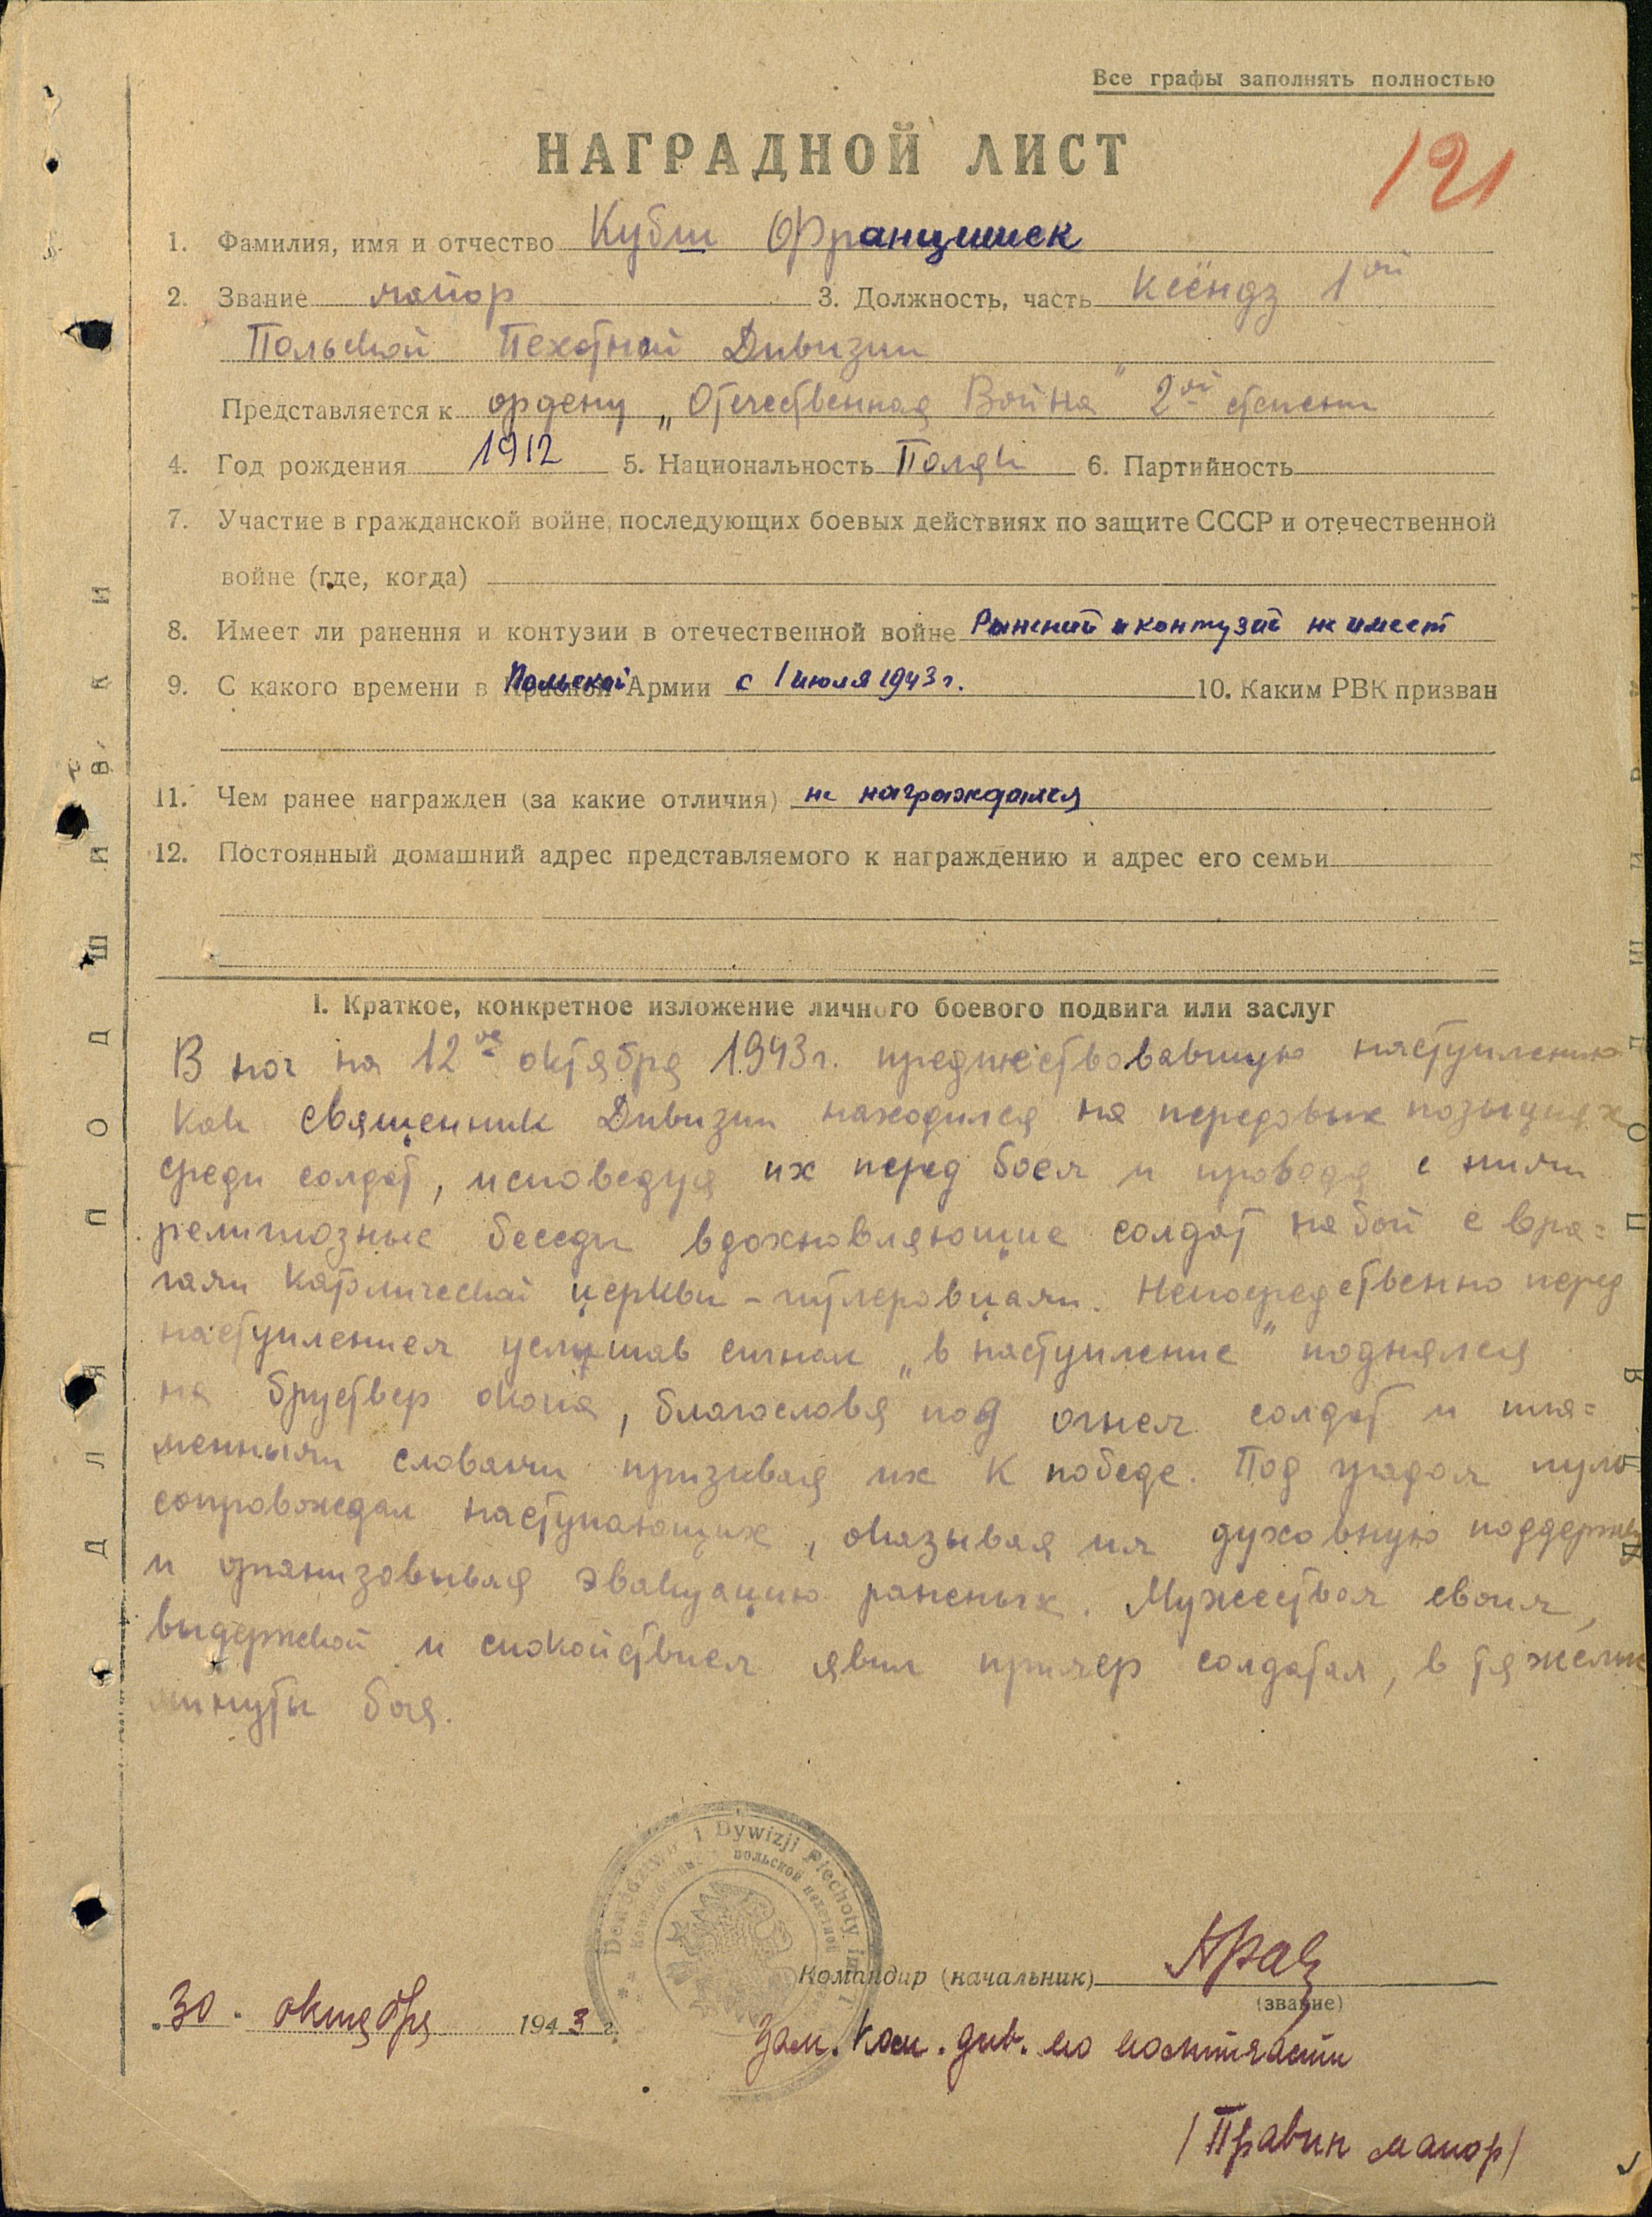 Все графы заполнять полностью
НАГРАДНОЙ ЛИСТ
121
1. Фамилия, имя и отчество Кубш Францишек
2. Звание майор 3. Должность, часть Ксёндз 1ой
Польской Пехотной Дивизии
Представляется к ордену „Отечественная Война" 2ой степени
4. Год рождения 1912 5. Национальность Поляк 6. Партийность
7. Участие в гражданской войне, последующих боевых действиях по защите СССР и отечественной
войне (где, когда)
8. Имеет ли ранения и контузии в отечественной войне Ранений и контузий не имеет
9. С какого времени в Польской Армии с 1 июля 1943 г. 10. Каким РВК призван
11. Чем ранее награжден (за какие отличия) не награждался
12. Постоянный домашний адрес представляемого к награждению и адрес его семьи
I. Краткое, конкретное изложение личного боевого подвига или заслуг
В ноч на 12ое октября 1943 г. предшествовавшую наступлению
как священник Дивизии находился на передовых позыциях
среди солдат, исповедуя их перед боем и проводя с ними
религиозные беседы вдохновляющие солдат на бой с вра=
гами католической церкви - гитлеровцами. Непосредственно перед
наступлением услышав сигнал „в наступление" поднялся
на бруствер окопа, благословя под огнем солдат и пла=
менными словами призывая их к победе. Под градом пуль
сопровождал наступающих, оказывая им духовную поддержку
и организовывая эвакуацию раненых. Мужеством своим,
выдержкой и спокойствием явил пример солдатам, в тяжёлые
минуты боя.
Dowództwo 1 Dywizji Piechoty im
польской пехотной
Командир (начальник)
(звание)
30. октября 1943 г.
Зам. Ком. див. по политчасти
/Правин майор/
ДЛЯ ПОДШИВКИ